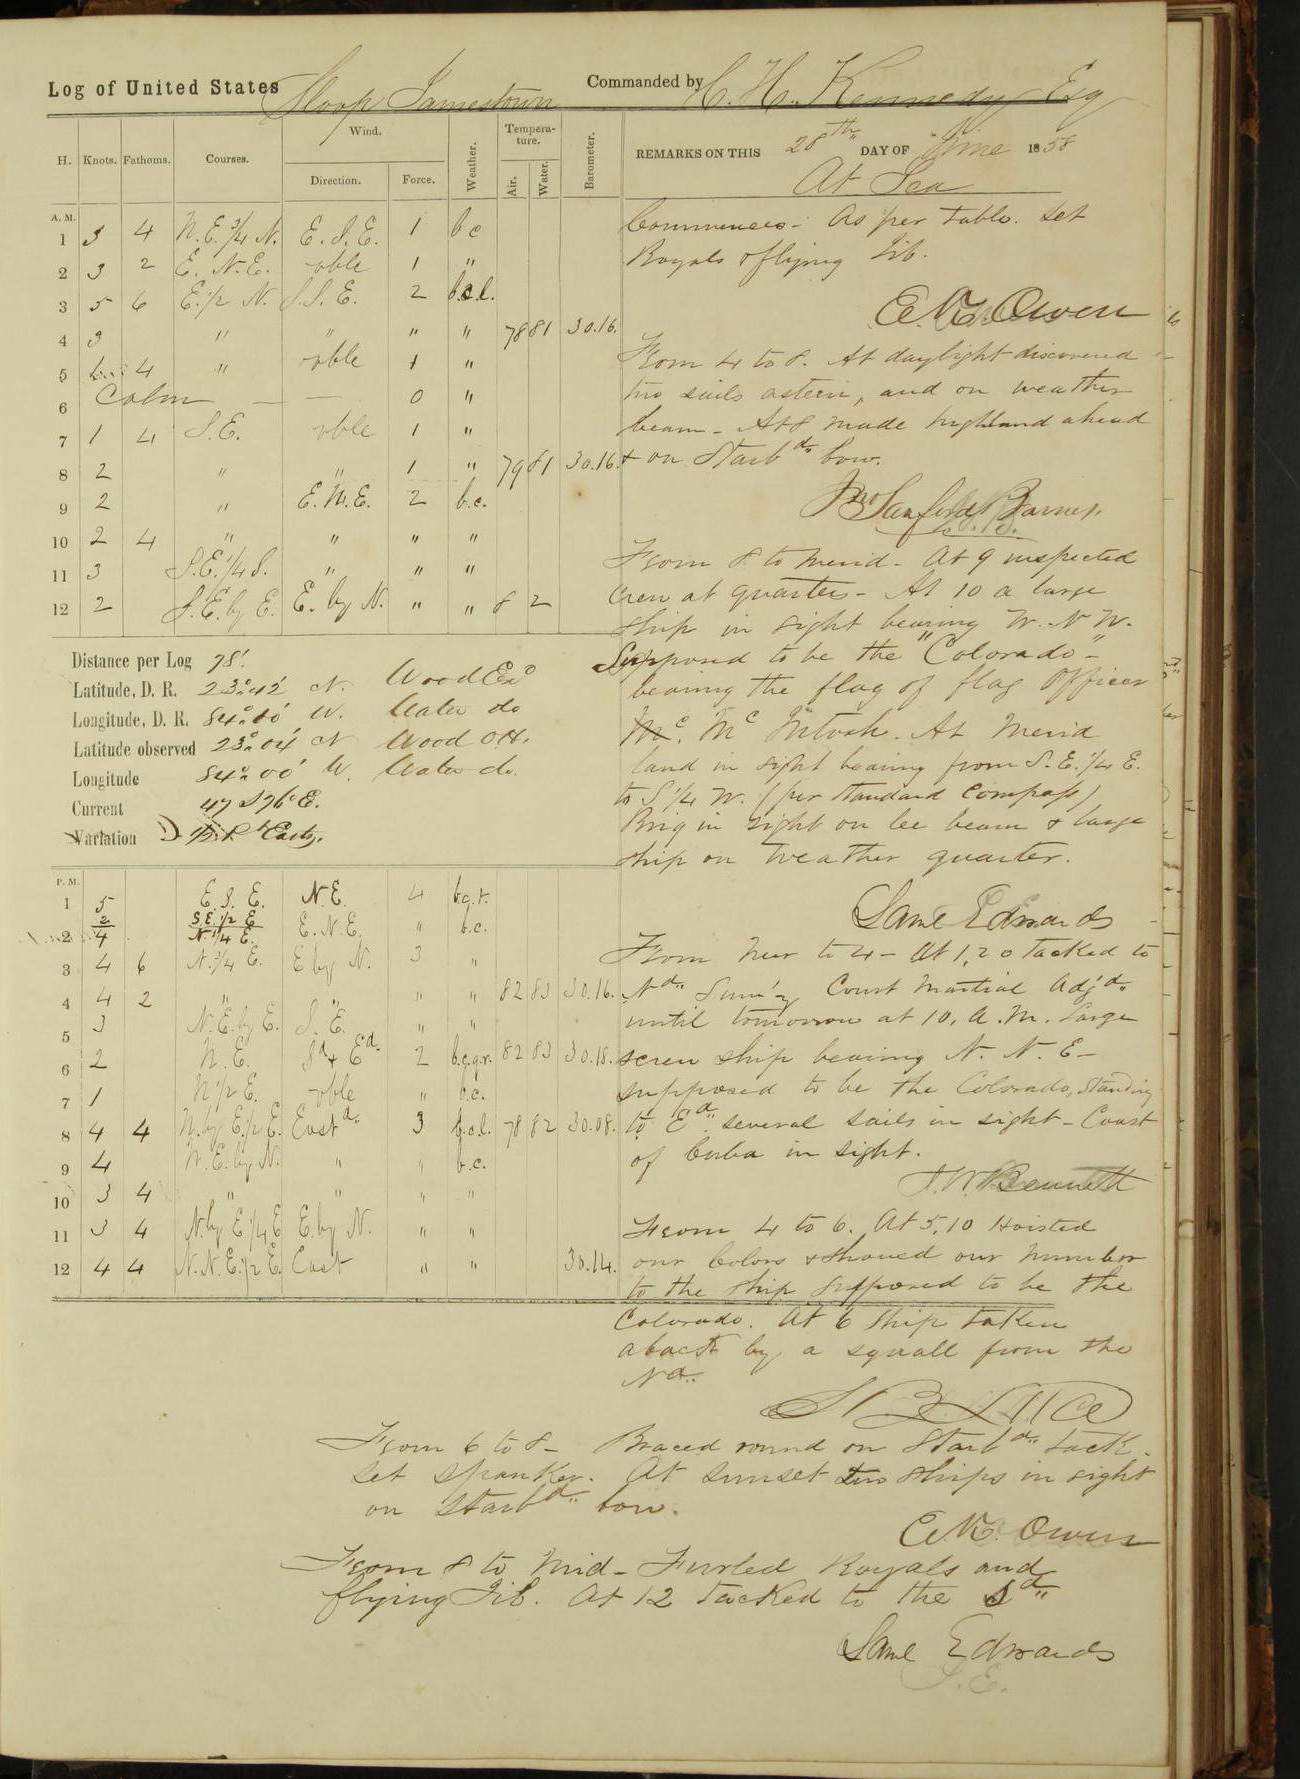 Log of United States Sloop Jamestown Commanded by C. H. Kennedy Esq
H. Knots. Fathoms. Courses. Wind. Direction. Force. Weather. Tempera-ture. Air. Water. Barometer.
REMARKS ON THIS 28th DAY OF June 1858
At Sea
A. M.
1 3 4 N.E. 3/4 N. E.S.E. 1 bc
2 3 2 E.N.E. vble 1 "
3 5 6 E. 1/2 N. S.S.E. 2 b.c.l.
4 3 " " " " 78 81 30.16.
5 4 " vble 1 "
6 Calm — — 0 "
7 1 4 S.E. vble 1 "
8 2 " " 1 " 79 81 30.16.
9 2 " E.N.E. 2 b.c.
10 2 4 " " " "
11 3 S.E. 1/4 S. " " "
12 2 S.E. by E. E. by N. " " 8 2
Commences - As per table. Set
Royals & flying Jib.
From 4 to 8. At daylight discovered
two sails astern, and on weather
beam - At 8 made highland ahead
& on Starbd. bow.
Jno Sanford Barnes.
From 8 to merid - At 9 inspected
crew at quarters - At 10 a large
ship in sight bearing W.N.W.
Supposed to be the "Colorado" -
bearing the flag of flag Officer
Mc. Mc Intosh. At Merid
land in sight bearing from S.E. 1/4 E.
to S 1/4 W. (per Standard Compass)
Brig in sight on lee beam & large
ship on weather quarter.
Saml Edwards
Distance per Log 78'.
Latitude, D. R. 23° 42' N. Wood Exd
Longitude, D. R. W. Water do
Latitude observed 23° 04' N Wood OH.
Longitude 84° 00' W. Water do.
Current 47 S 76° E.
Variation 1/2 Pt Easty.
P. M.
1 5 E.S.E. N.E. 4 b.c.t.
2 2 4 S.E. 1/2 E N. 1/4 E. E.N.E. " b.c.
3 4 6 N. 3/4 E. E by N. 3 "
4 4 2 " " " " 82 83 30.16.
5 3 N.E. by E. S.E. " "
6 2 N.E. Sd & Ed. 2 b.c.q.r. 82 83 30.18.
7 1 N 1/2 E. vble " b.c.
8 4 4 N. by E. 1/2 E. Eastd. 3 b.c.l. 78 82 30.08.
9 4 N.E. by N. " " b.c.
10 3 4 " " " "
11 3 4 N by E 1/4 E E. by N. " "
12 4 4 N.N.E. 1/2 E. East " " 30.14.
From Mer to 4 - At 1.20 tacked to
Nd. Sum'y Court Martial Adj'd.
until tomorrow at 10. A.M. Large
screw ship bearing N.N.E -
supposed to be the Colorado, standing
to Ed. several sails in sight - Coast
of Cuba in sight.
J.W. Bennett
From 4 to 6. At 5.10 Hoisted
our Colors & showed our number
to the ship supposed to be the
Colorado. At 6 ship taken
aback by a squall from the
Nd.
S B Luce
From 6 to 8 - Braced round on Starbd. tack.
Set Spanker. At sunset two ships in sight
on Starbd. bow.
From 8 to Mid - Furled Royals and
flying Jib. At 12 tacked to the Sd.
Saml Edwards
S.E.